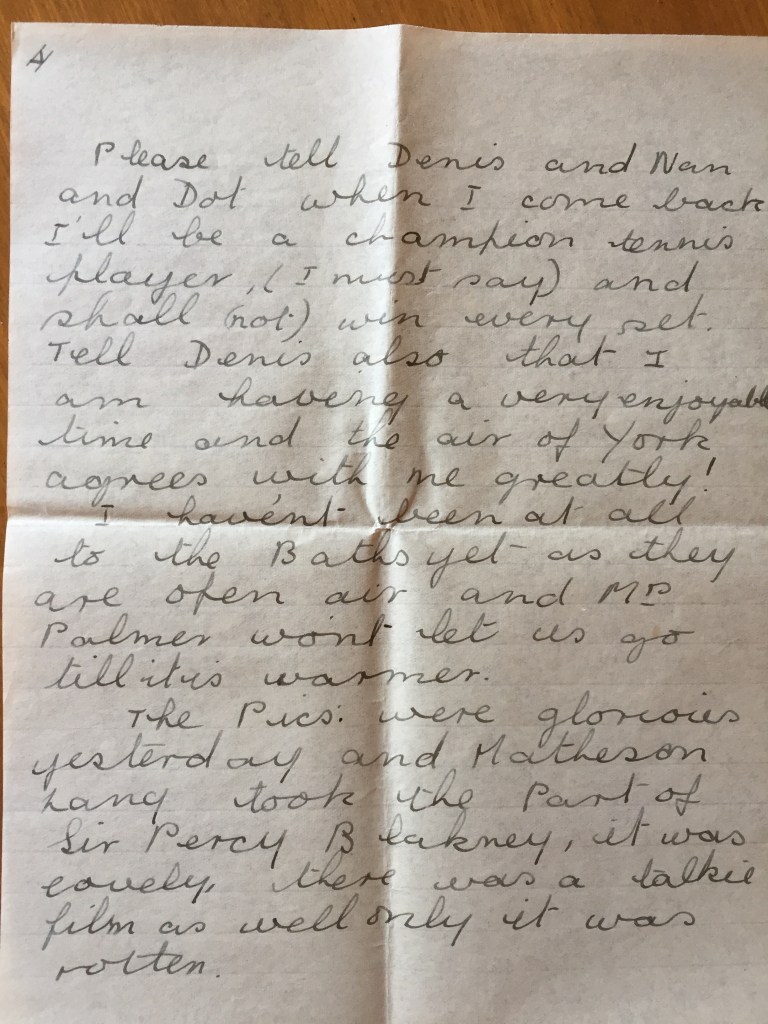 4
Please tell Denis and Nan
and Dot when I come back
I'll be a champion tennis
player, (I must say) and
shall (not) win every set.
Tell Denis also that I
am haveing a very enjoyable
time and the air of York
agrees with me greatly!
I have'nt been at all
to the Baths yet as they
are open air and Mrs
Palmer wont let us go
till it is warmer.
The Pics: were glorious
yesterday and Matheson
Lang took the Part of
Sir Percy Blakney, it was
lovely, there was a talkie
film as well only it was
rotten.